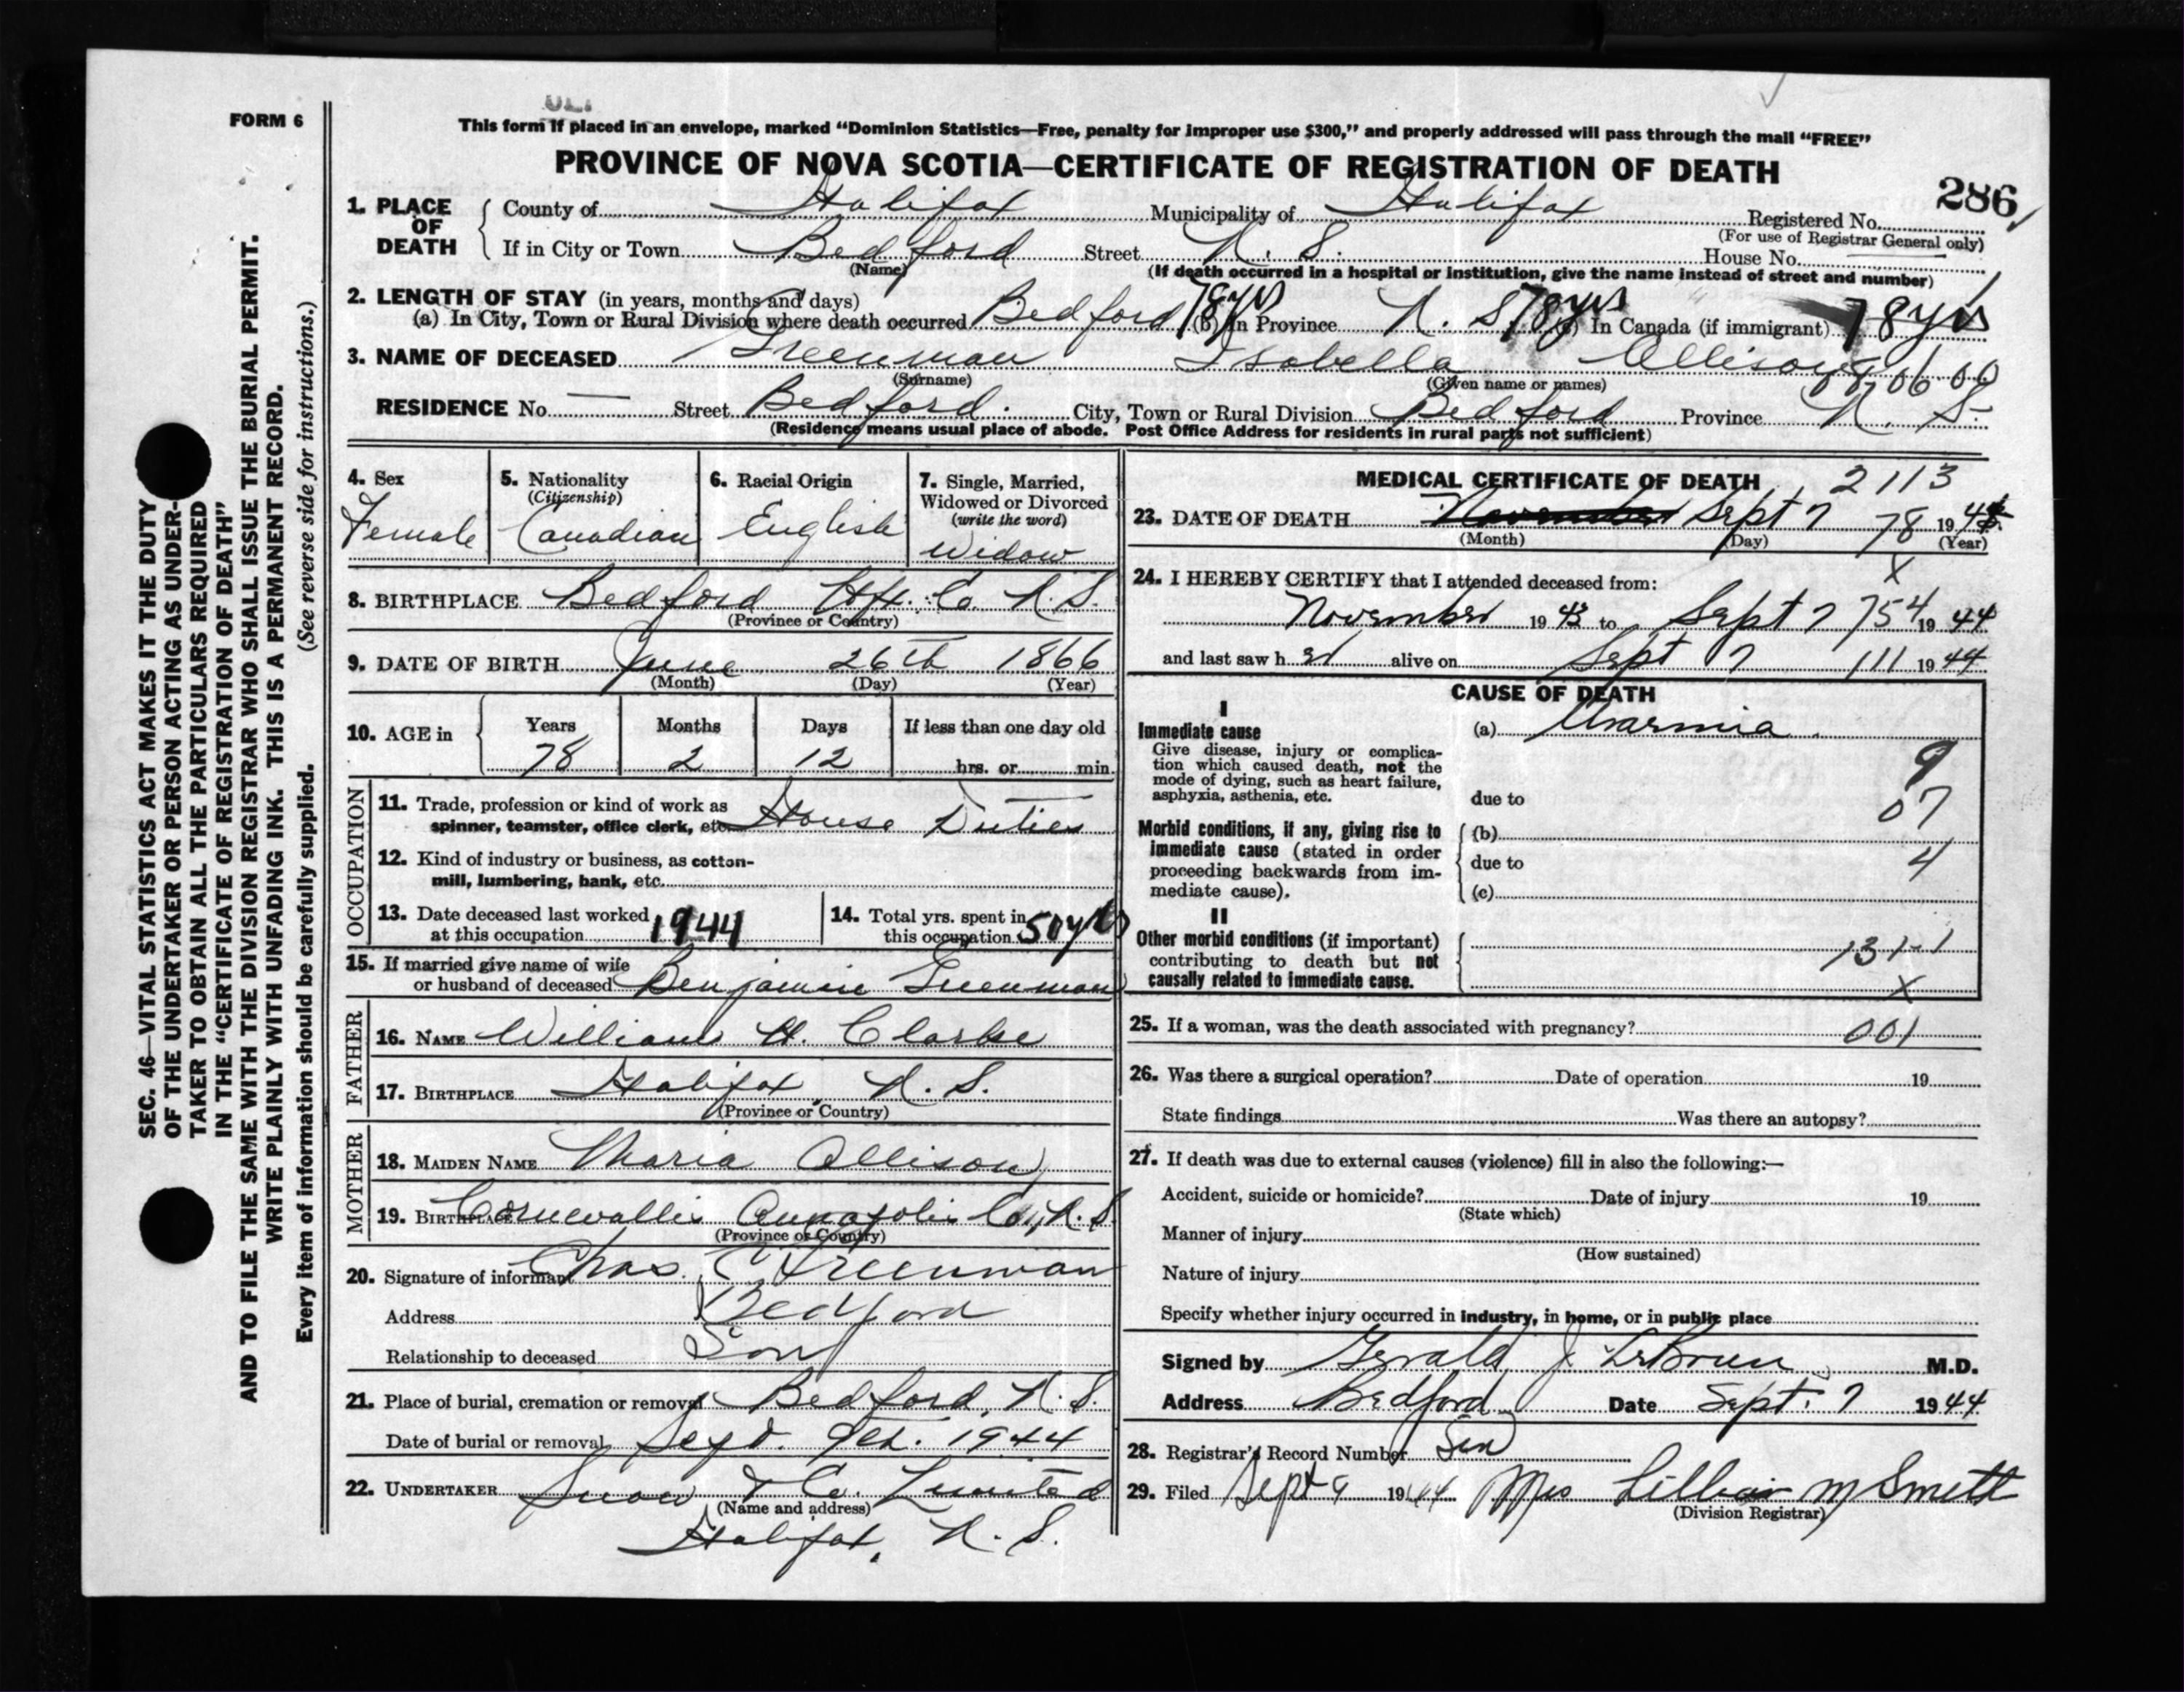 This form if placed in an envelope, marked “Dominion Statistics—Free, penalty for improper use $300,” and properly addressed will pass through the mail “FREE”
FORM 6
PROVINCE OF NOVA SCOTIA—CERTIFICATE OF REGISTRATION OF DEATH
286
1. PLACE OF DEATH { County of Halifax Municipality of Halifax Registered No.
(For use of Registrar General only)
If in City or Town Bedford Street N. S. House No.
(Name) (If death occurred in a hospital or institution, give the name instead of street and number)
2. LENGTH OF STAY (in years, months and days)
(a) In City, Town or Rural Division where death occurred Bedford 78 yrs (b) In Province N. S 78 yrs (c) In Canada (if immigrant) 78 yrs
3. NAME OF DECEASED Greenman Isabella Allison
(Surname) (Given name or names)
RESIDENCE No. — Street Bedford. City, Town or Rural Division Bedford Province N. S.
(Residence means usual place of abode. Post Office Address for residents in rural parts not sufficient)
4. Sex
Female
5. Nationality
(Citizenship)
Canadian
6. Racial Origin
English
7. Single, Married, Widowed or Divorced
(write the word)
Widow
8. BIRTHPLACE Bedford Hfx. Co. N.S.
(Province or Country)
9. DATE OF BIRTH June 26th 1866
(Month) (Day) (Year)
10. AGE in { Years Months Days If less than one day old
78 2 12 hrs. or min.
OCCUPATION
11. Trade, profession or kind of work as spinner, teamster, office clerk, etc. House Duties
12. Kind of industry or business, as cotton-mill, lumbering, bank, etc.
13. Date deceased last worked at this occupation 1944
14. Total yrs. spent in this occupation 50 yrs
15. If married give name of wife or husband of deceased Benjamin Greenman
FATHER
16. NAME William H. Clarke
17. BIRTHPLACE Halifax N. S.
(Province or Country)
MOTHER
18. MAIDEN NAME Maria Allison
19. BIRTHPLACE Cornwallis Annapolis Co., N.S
(Province or Country)
20. Signature of informant Chas. C Greenman
Address Bedford
Relationship to deceased Son
21. Place of burial, cremation or removal Bedford, N. S.
Date of burial or removal Sept. 9th. 1944
22. UNDERTAKER Snow & Co. Limited
(Name and address)
Halifax, N. S.
MEDICAL CERTIFICATE OF DEATH 2113
23. DATE OF DEATH November Sept 7 78 1944
(Month) (Day) (Year)
X
24. I HEREBY CERTIFY that I attended deceased from:
November 1943 to Sept 7 754 1944
and last saw h er alive on Sept 7 111 1944
CAUSE OF DEATH
I
Immediate cause (a)
Give disease, injury or complication which caused death, not the mode of dying, such as heart failure, asphyxia, asthenia, etc.
9
due to 07
Morbid conditions, if any, giving rise to immediate cause (stated in order proceeding backwards from immediate cause). { (b)
due to 4
(c)
II
Other morbid conditions (if important) contributing to death but not causally related to immediate cause. { 131-1
X
25. If a woman, was the death associated with pregnancy? 001
26. Was there a surgical operation? Date of operation 19
State findings Was there an autopsy?
27. If death was due to external causes (violence) fill in also the following:—
Accident, suicide or homicide? Date of injury 19
(State which)
Manner of injury
(How sustained)
Nature of injury
Specify whether injury occurred in industry, in home, or in public place
Signed by Gerald J. LeBrun M.D.
Address Bedford Date Sept. 7 1944
28. Registrar's Record Number
29. Filed Sept 9 1944 Mrs Lillian M Smith
(Division Registrar)
SEC. 46—VITAL STATISTICS ACT MAKES IT THE DUTY
OF THE UNDERTAKER OR PERSON ACTING AS UNDER-
TAKER TO OBTAIN ALL THE PARTICULARS REQUIRED
IN THE “CERTIFICATE OF REGISTRATION OF DEATH”
AND TO FILE THE SAME WITH THE DIVISION REGISTRAR WHO SHALL ISSUE THE BURIAL PERMIT.
WRITE PLAINLY WITH UNFADING INK. THIS IS A PERMANENT RECORD.
Every item of information should be carefully supplied. (See reverse side for instructions.)